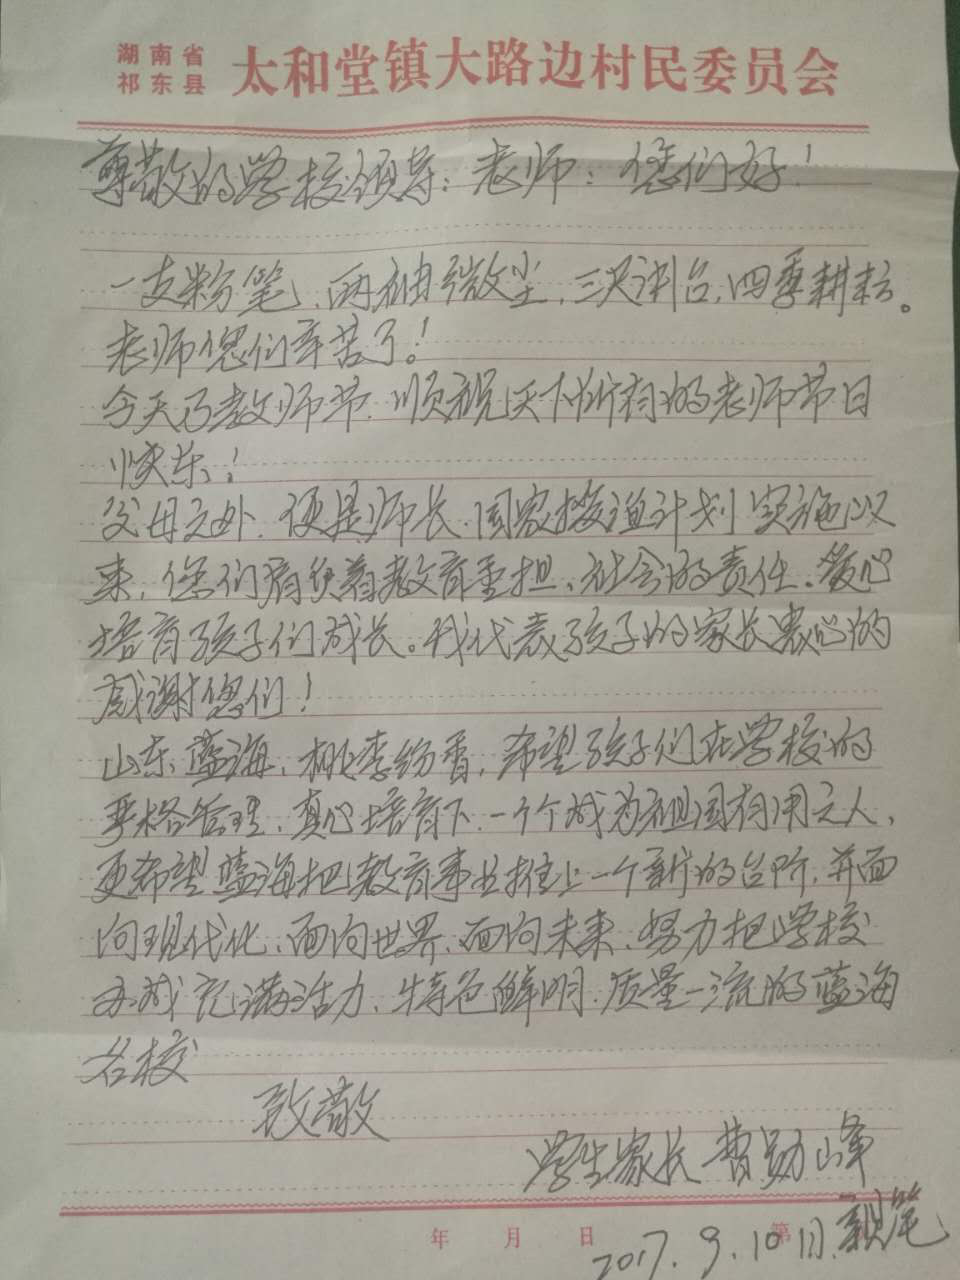 湖南省
祁东县
太和堂镇大路边村民委员会
尊敬的学校领导：老师：您们好！
一支粉笔、两袖微尘，三尺讲台，四季耕耘。
老师您们辛苦了！
今天乃教师节，顺祝天下所有的老师节日
快乐！
父母之外，便是师长，国家接送计划实施以
来，您们肩负着教育重担、社会的责任、爱心
培育孩子们成长。我代表孩子的家长衷心的
感谢您们！
山东蓝海，桃李纷香，希望孩子们在学校的
严格管理、真心培育下，一个个成为祖国有用之人，
更希望蓝海把教育事业推上一个新的台阶，并面
向现代化、面向世界、面向未来、努力把学校
办成充满活力、特色鲜明、质量一流的蓝海
名校
致敬
学生家长 曹勋峰
年 月 日 第
2017.9.10日.亲笔